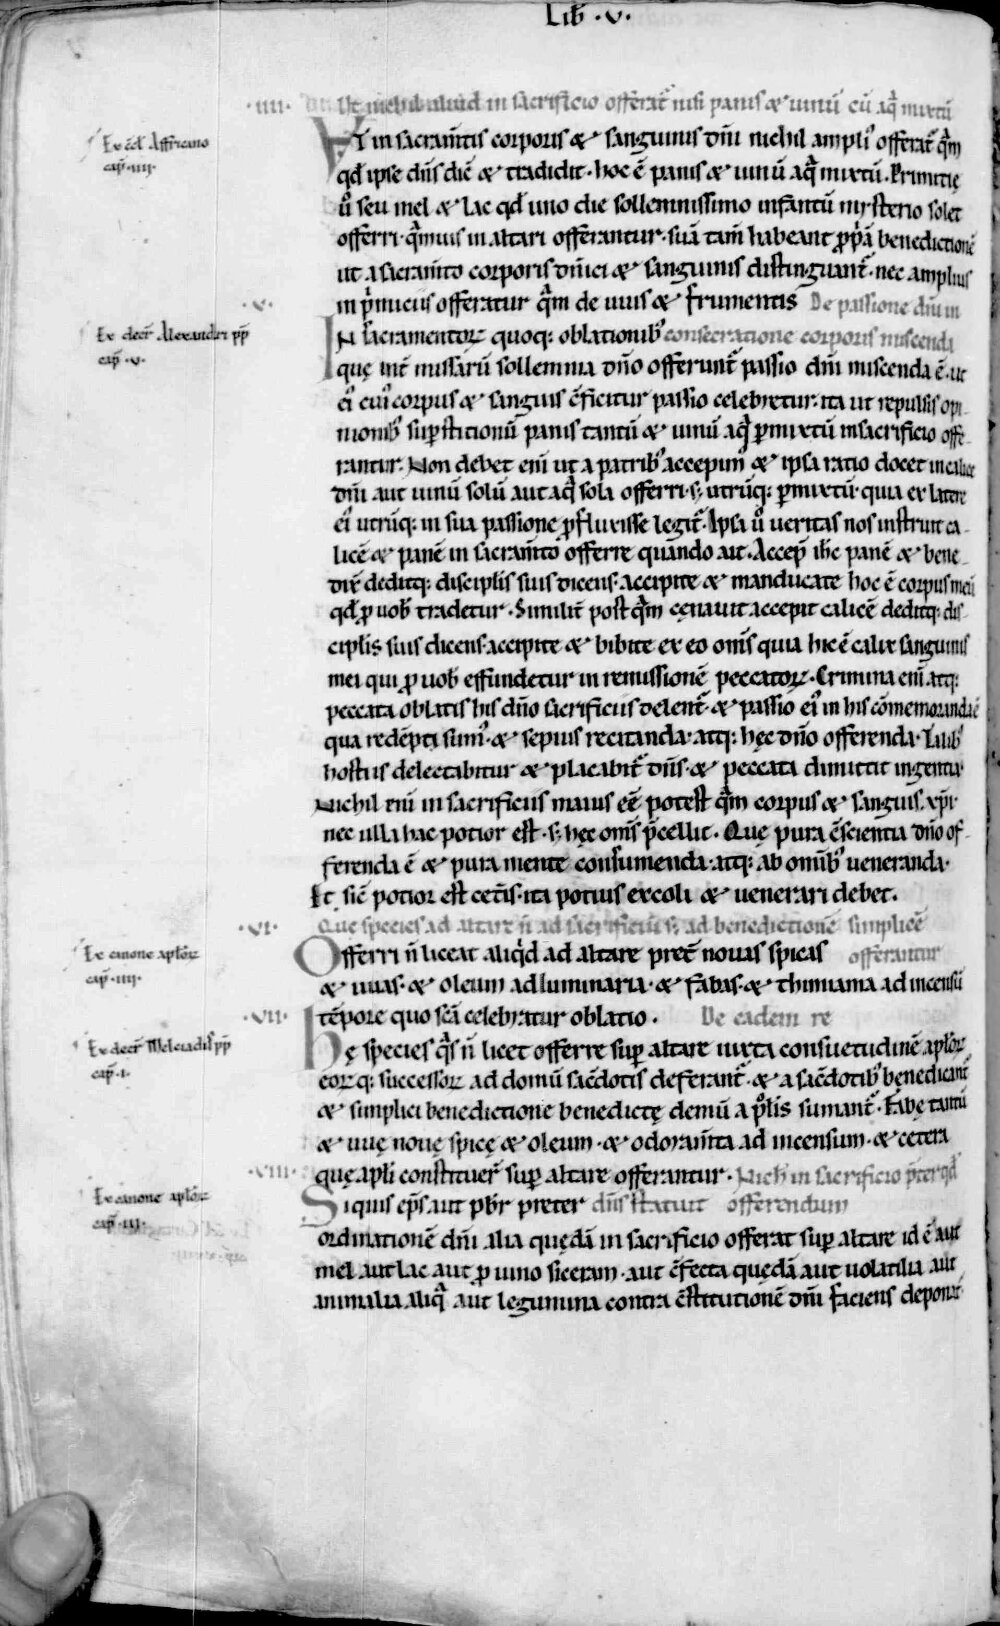 Lib̄ · v ·
· iiii · Ut nichil aliud in sacrificio offerat̄ nisi panis & uinū cū aq̄ mixtū
Ex c̄cl Affricano
cap̄ · iiii ·
VT in sacram̄tis corporis & sanguinis dn̄i nichil ampli᾿ offerat̄ q̄m
qd̄ ipse dn̄s dic̄ & tradidit · hoc ē panis & uinū aq̄ mixtū. Primitię
ū᾿ seu mel & lac qd̄ uno die sollemnissimo infantū mysterio solet
offerri · q̄muis in altari offerantur · suā tam̄ habeant p̄p̄ā benedictionē
ut a sacram̄to corporis dn̄ici & sanguinis distinguant̄ · nec amplius
in p̄miciis offeratur q̄m de uuis & frumentis De passione dn̄i in
· v ·
Ex decr̄ Alexandri pp̄
cap̄ · v ·
IN sacramentoꝝ quoq: oblationib᾿ consecratione corporis miscenda
quę int̄ missarū sollemnia dn̄o offerunt̄ passio dn̄i miscenda ē · ut
ei᾿ cui᾿ corpus & sanguis c̄ficitur passio celebretur · ita ut repulsis opi-
nionib᾿ sup̄stitionū panis tantū & uinū aq̄ p̄mixtū in sacrificio offe-
rantur. Non debet eni ut a patrib᾿ accepim᾿ & ipsa ratio docet in calice
dn̄i aut uinū solū aut aq̄ sola offerri · s; utrūq: p̄mixtū · quia ex latere
ei᾿ utrūq: in sua passione p̄fluxisse legit̄. Ipsa ū᾿ ueritas nos instruit ca-
licē & panē in sacram̄to offerre quando ait. Accep̄ ih̄c panē & bene-
dix̄ deditq: discipl̄is suis dicens · accipite & manducate hoc ē corpus meū
qd̄ p̄ uob̄ tradetur. Similit̄ post q̄m cęnauit accepit calicē deditq: dis-
cipl̄is suis dicens · accipite & bibite ex eo om̄s quia hic ē calix sanguinis
mei qui p̄ uob̄ effundetur in remissionē peccatoꝝ. Crimina eni atq:
peccata oblatis his dn̄o sacrificiis delent̄ · & passio ei᾿ in his cōmemoranda ē
qua redēpti sum᾿ · & sepius recitanda · atq: hęc dn̄o offerenda. Talib᾿
hostiis delectabitur & placabit̄ dn̄s · & peccata dimittit ingentia ·
Nichil eni in sacrificiis maius eē potest q̄m corpus & sanguis xp̄i
nec ulla hac potior est · s; hęc om̄s p̄cellit. Quę pura c̄scientia dn̄o of-
ferenda ē & pura mente consumenda · atq: ab omib᾿ ueneranda ·
Et sic̄ potior est cet̄is · ita potius excoli & uenerari debet.
· vi · Que species ad altare n̄ ad sacrificiū s; ad benedictionē simplicē
Ex canone apl̄oꝝ
cap̄ · iiii ·
Offerri n̄ liceat aliq̄d ad altare pret̄ nouas spicas offerantur
& uuas · & oleum ad luminaria · & fabas · & thimiama ad incensū
· vii · tēpore quo sc̄a celebratur oblatio. De eadem re
Ex decr̄ Melciadis pp̄
cap̄ · i ·
Hę species q̄s n̄ licet offerre sup̄ altare iuxta consuetudinē apl̄oꝝ
eoꝝ q: successoꝝ ad domū sac̄dotis deferant̄ · & a sac̄dotib᾿ benedicant̄
& simplici benedictione benedictę demū a p̄l̄is sumant̄. Fabę tantū
& uuę nouę spicę & oleum · & odoram̄ta ad incensum · & cetera
· viii · quę apl̄i constituer̄ sup̄ altare offerantur. Nich̄ in sacrificio p̄terqd̄
Ex canone apl̄oꝝ
cap̄ · iii ·
Siquis ep̄s aut pb̄r preter dn̄s statuit offerendum
ordinationē dn̄i alia quędā in sacrificio offerat sup̄ altare id ē aut
mel aut lac aut p̄ uino siceram · aut c̄fecta quędā aut uolatilia aut
animalia aliq̄ aut legumina contra c̄stitutionē dn̄i faciens deponat᾿